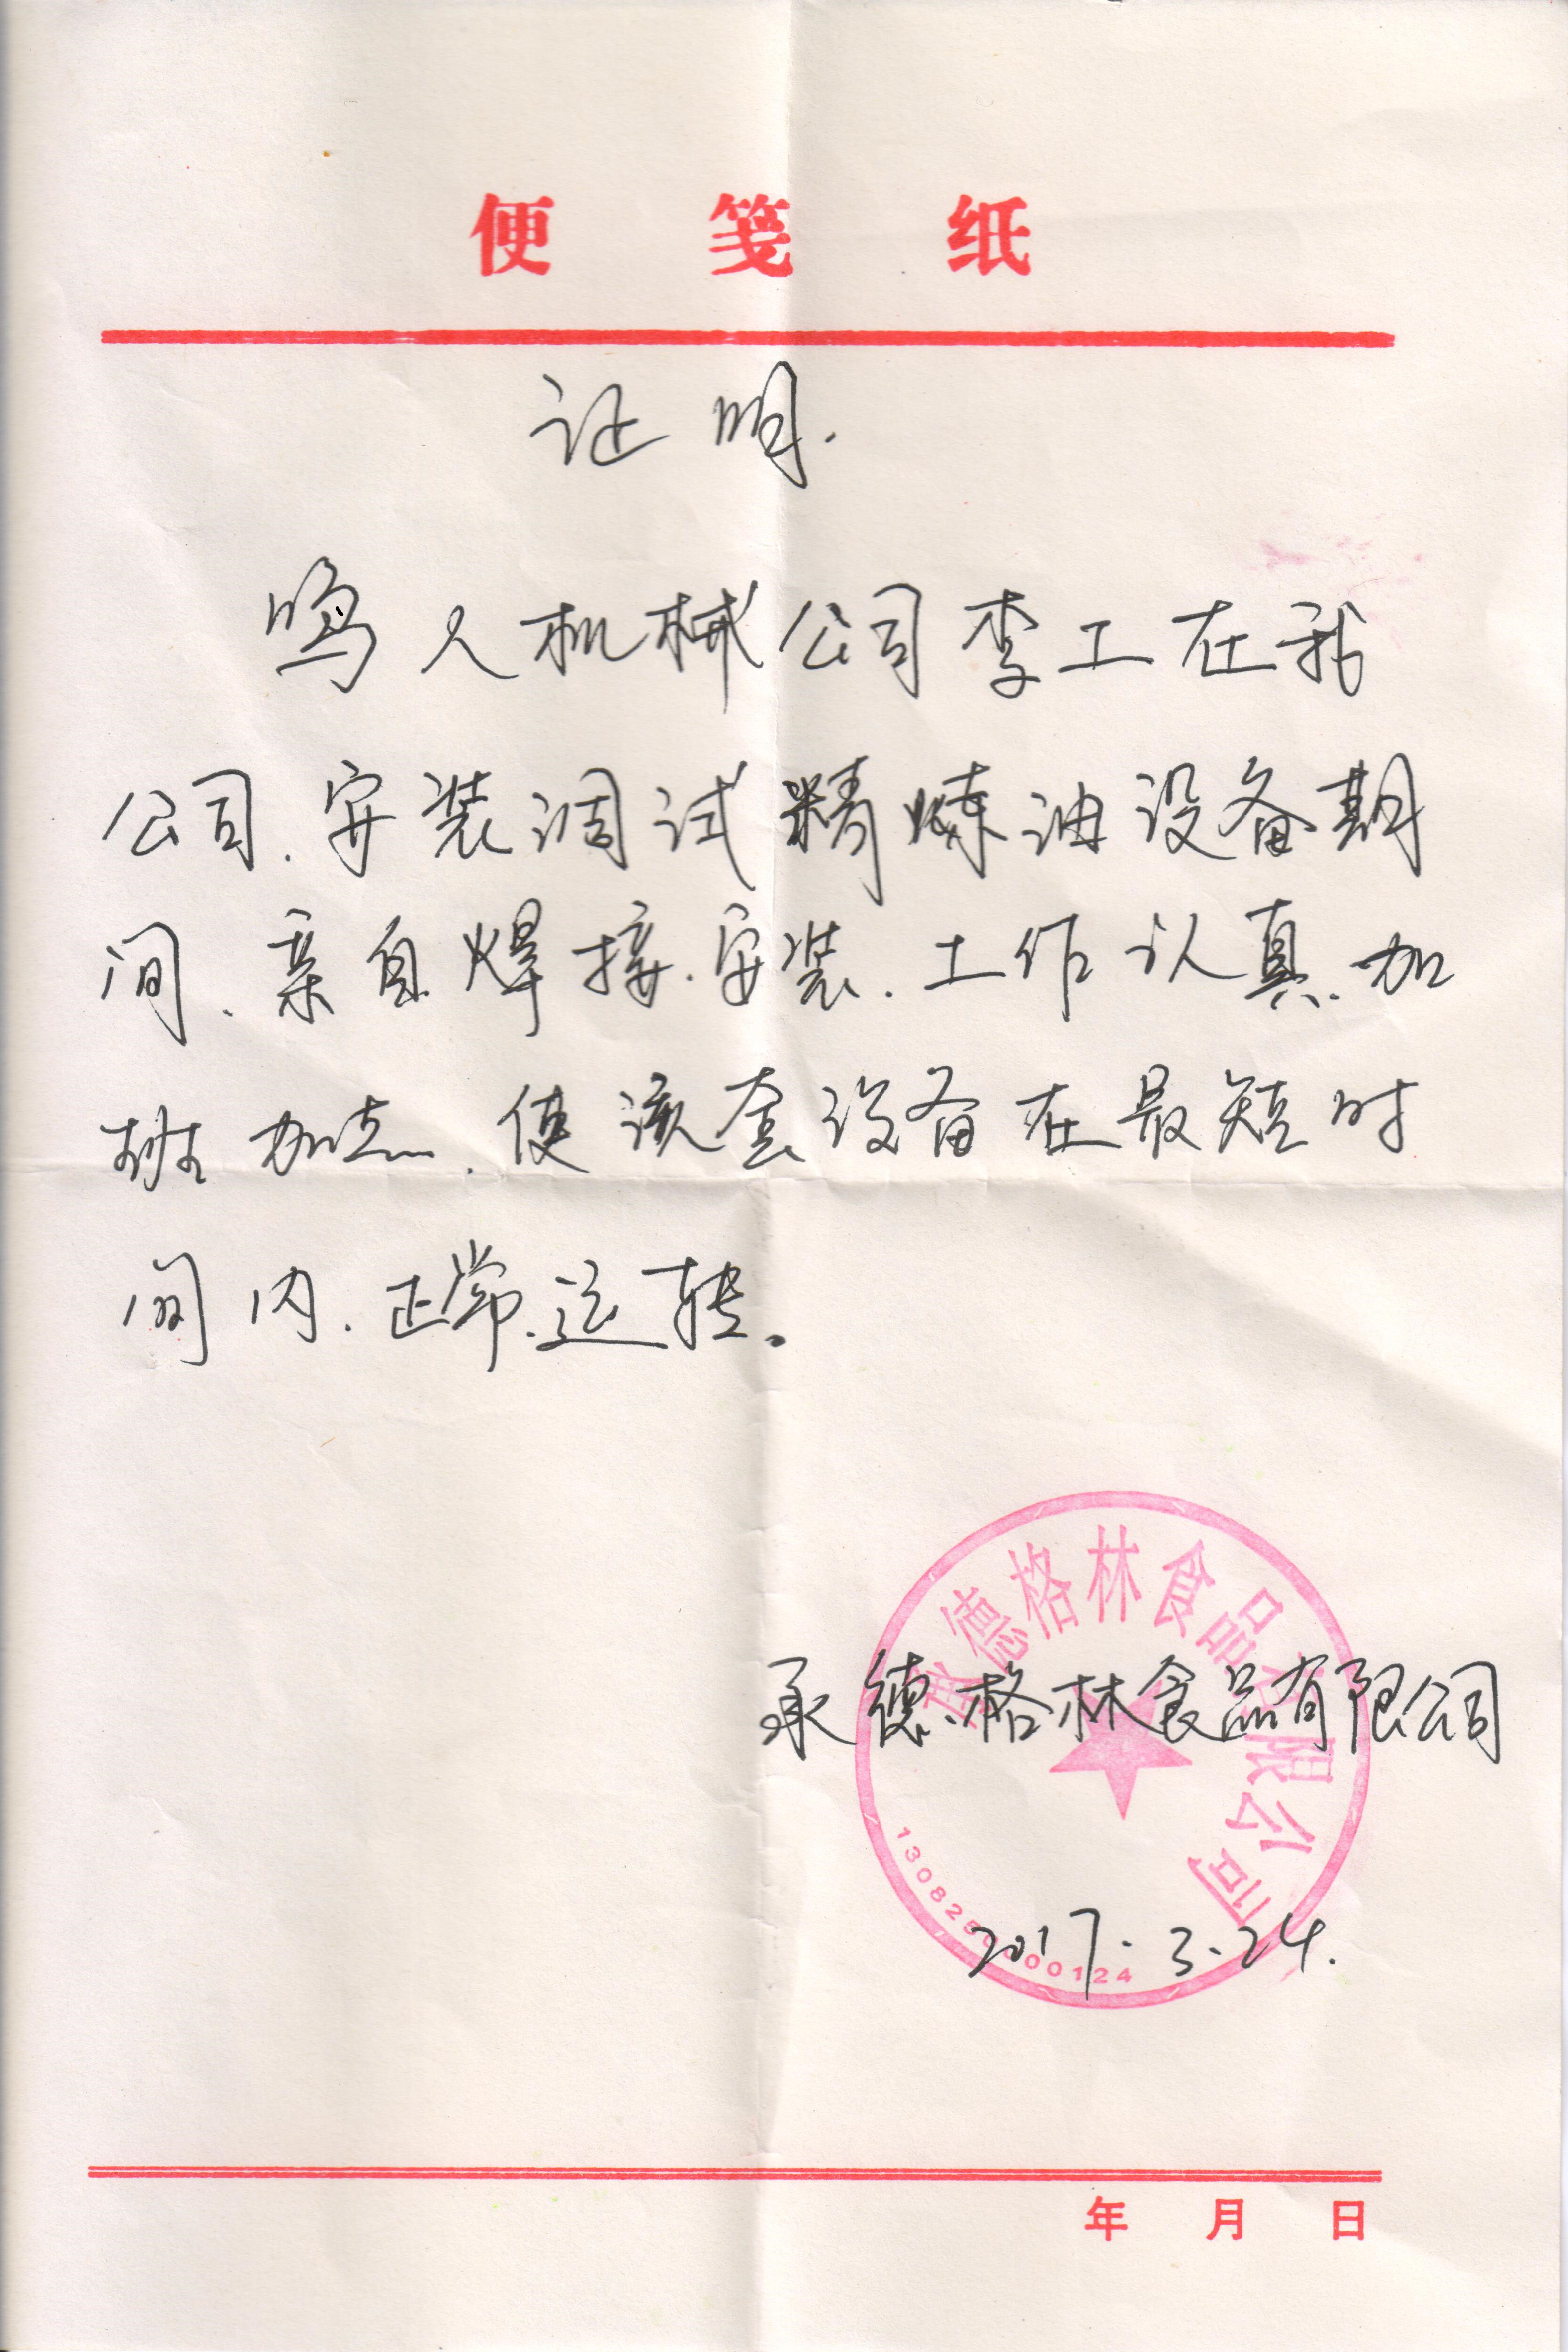 便笺纸
证明.
鸣人机械公司李工在我
公司.安装调试精炼油设备期
间.亲自焊接.安装.工作认真.加
班加点.使该套设备在最短时
间内.正常.运转。
承德格林食品有限公司
承德.格林食品有限公司
2017.3.24.
年 月 日